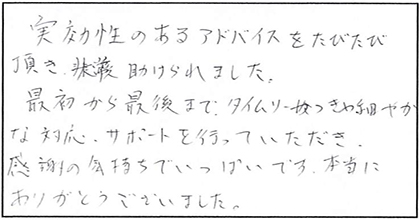 実効性のあるアドバイスをたびたび
頂き、助けられました。
最初から最後まで、タイムリーかつきめ細やか
な対応、サポートを行っていただき、
感謝の気持ちでいっぱいです。本当に
ありがとうございました。